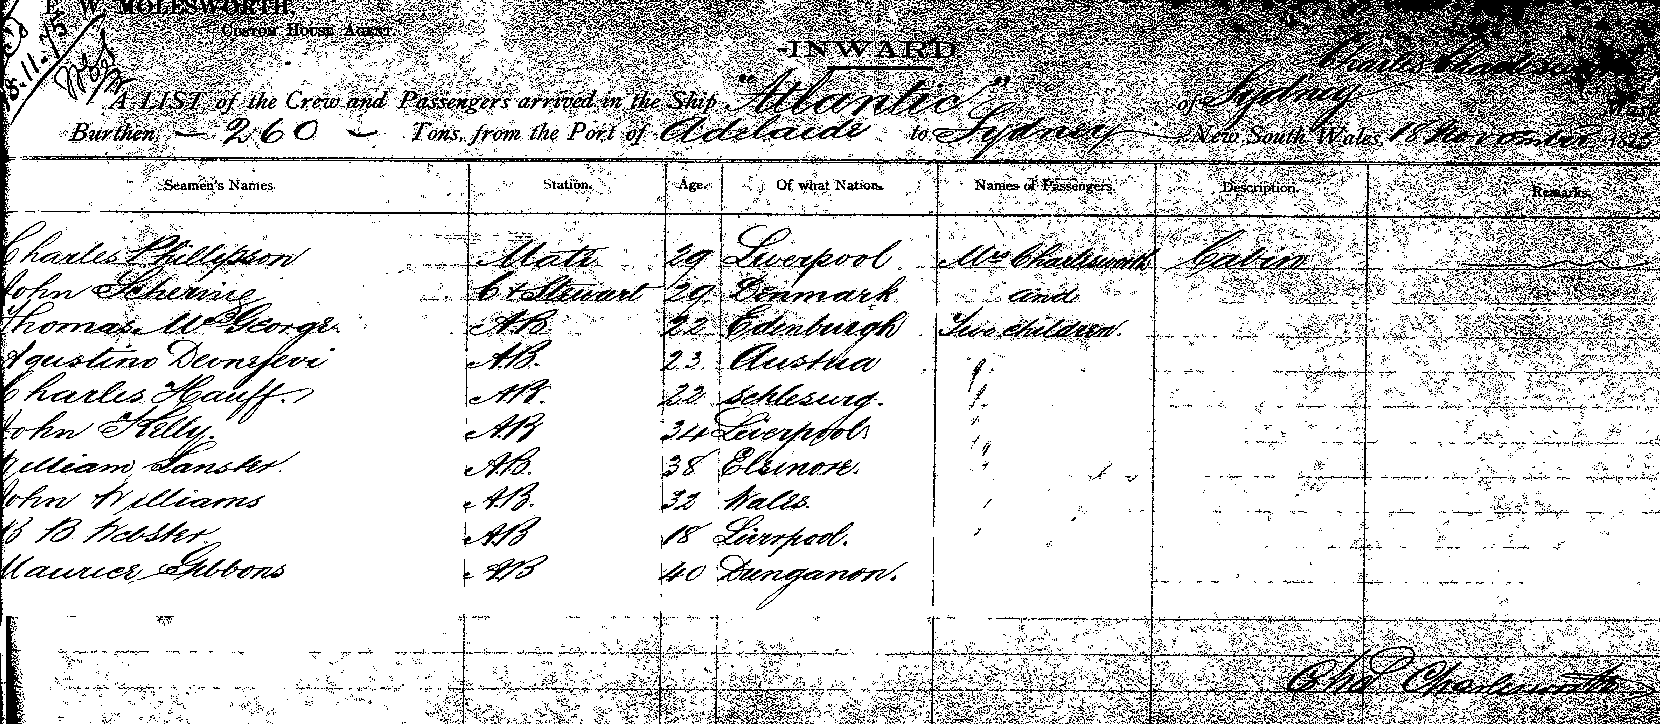 E. W. MOLESWORTH
CUSTOM HOUSE AGENT.
INWARD
Charles Charlesworth
A LIST of the Crew and Passengers arrived in the Ship "Atlantic" of Sydney
Burthen — 260 — Tons, from the Port of Adelaide to Sydney New South Wales, 18 November
Seamen's Names. Station. Age. Of what Nation. Names of Passengers. Description. Remarks.
Charles Phillipson Mate 29 Liverpool Mrs Charlesworth Cabin
John Schering C & Stewart 29 Denmark and
Thomas McGeorge A.B. 22 Edinburgh Two children.
Agustino A.B. 23 Austria
Charles Hauff. A.B. 22 Schleswig.
John Kelly. A.B 34 Liverpool
William A.B. 38 Elsinore.
John Williams A.B. 32 Wales.
B Webster. A.B 18 Liverpool.
Maurice Gibbons A.B 40 Dunganon.
Chas Charlesworth